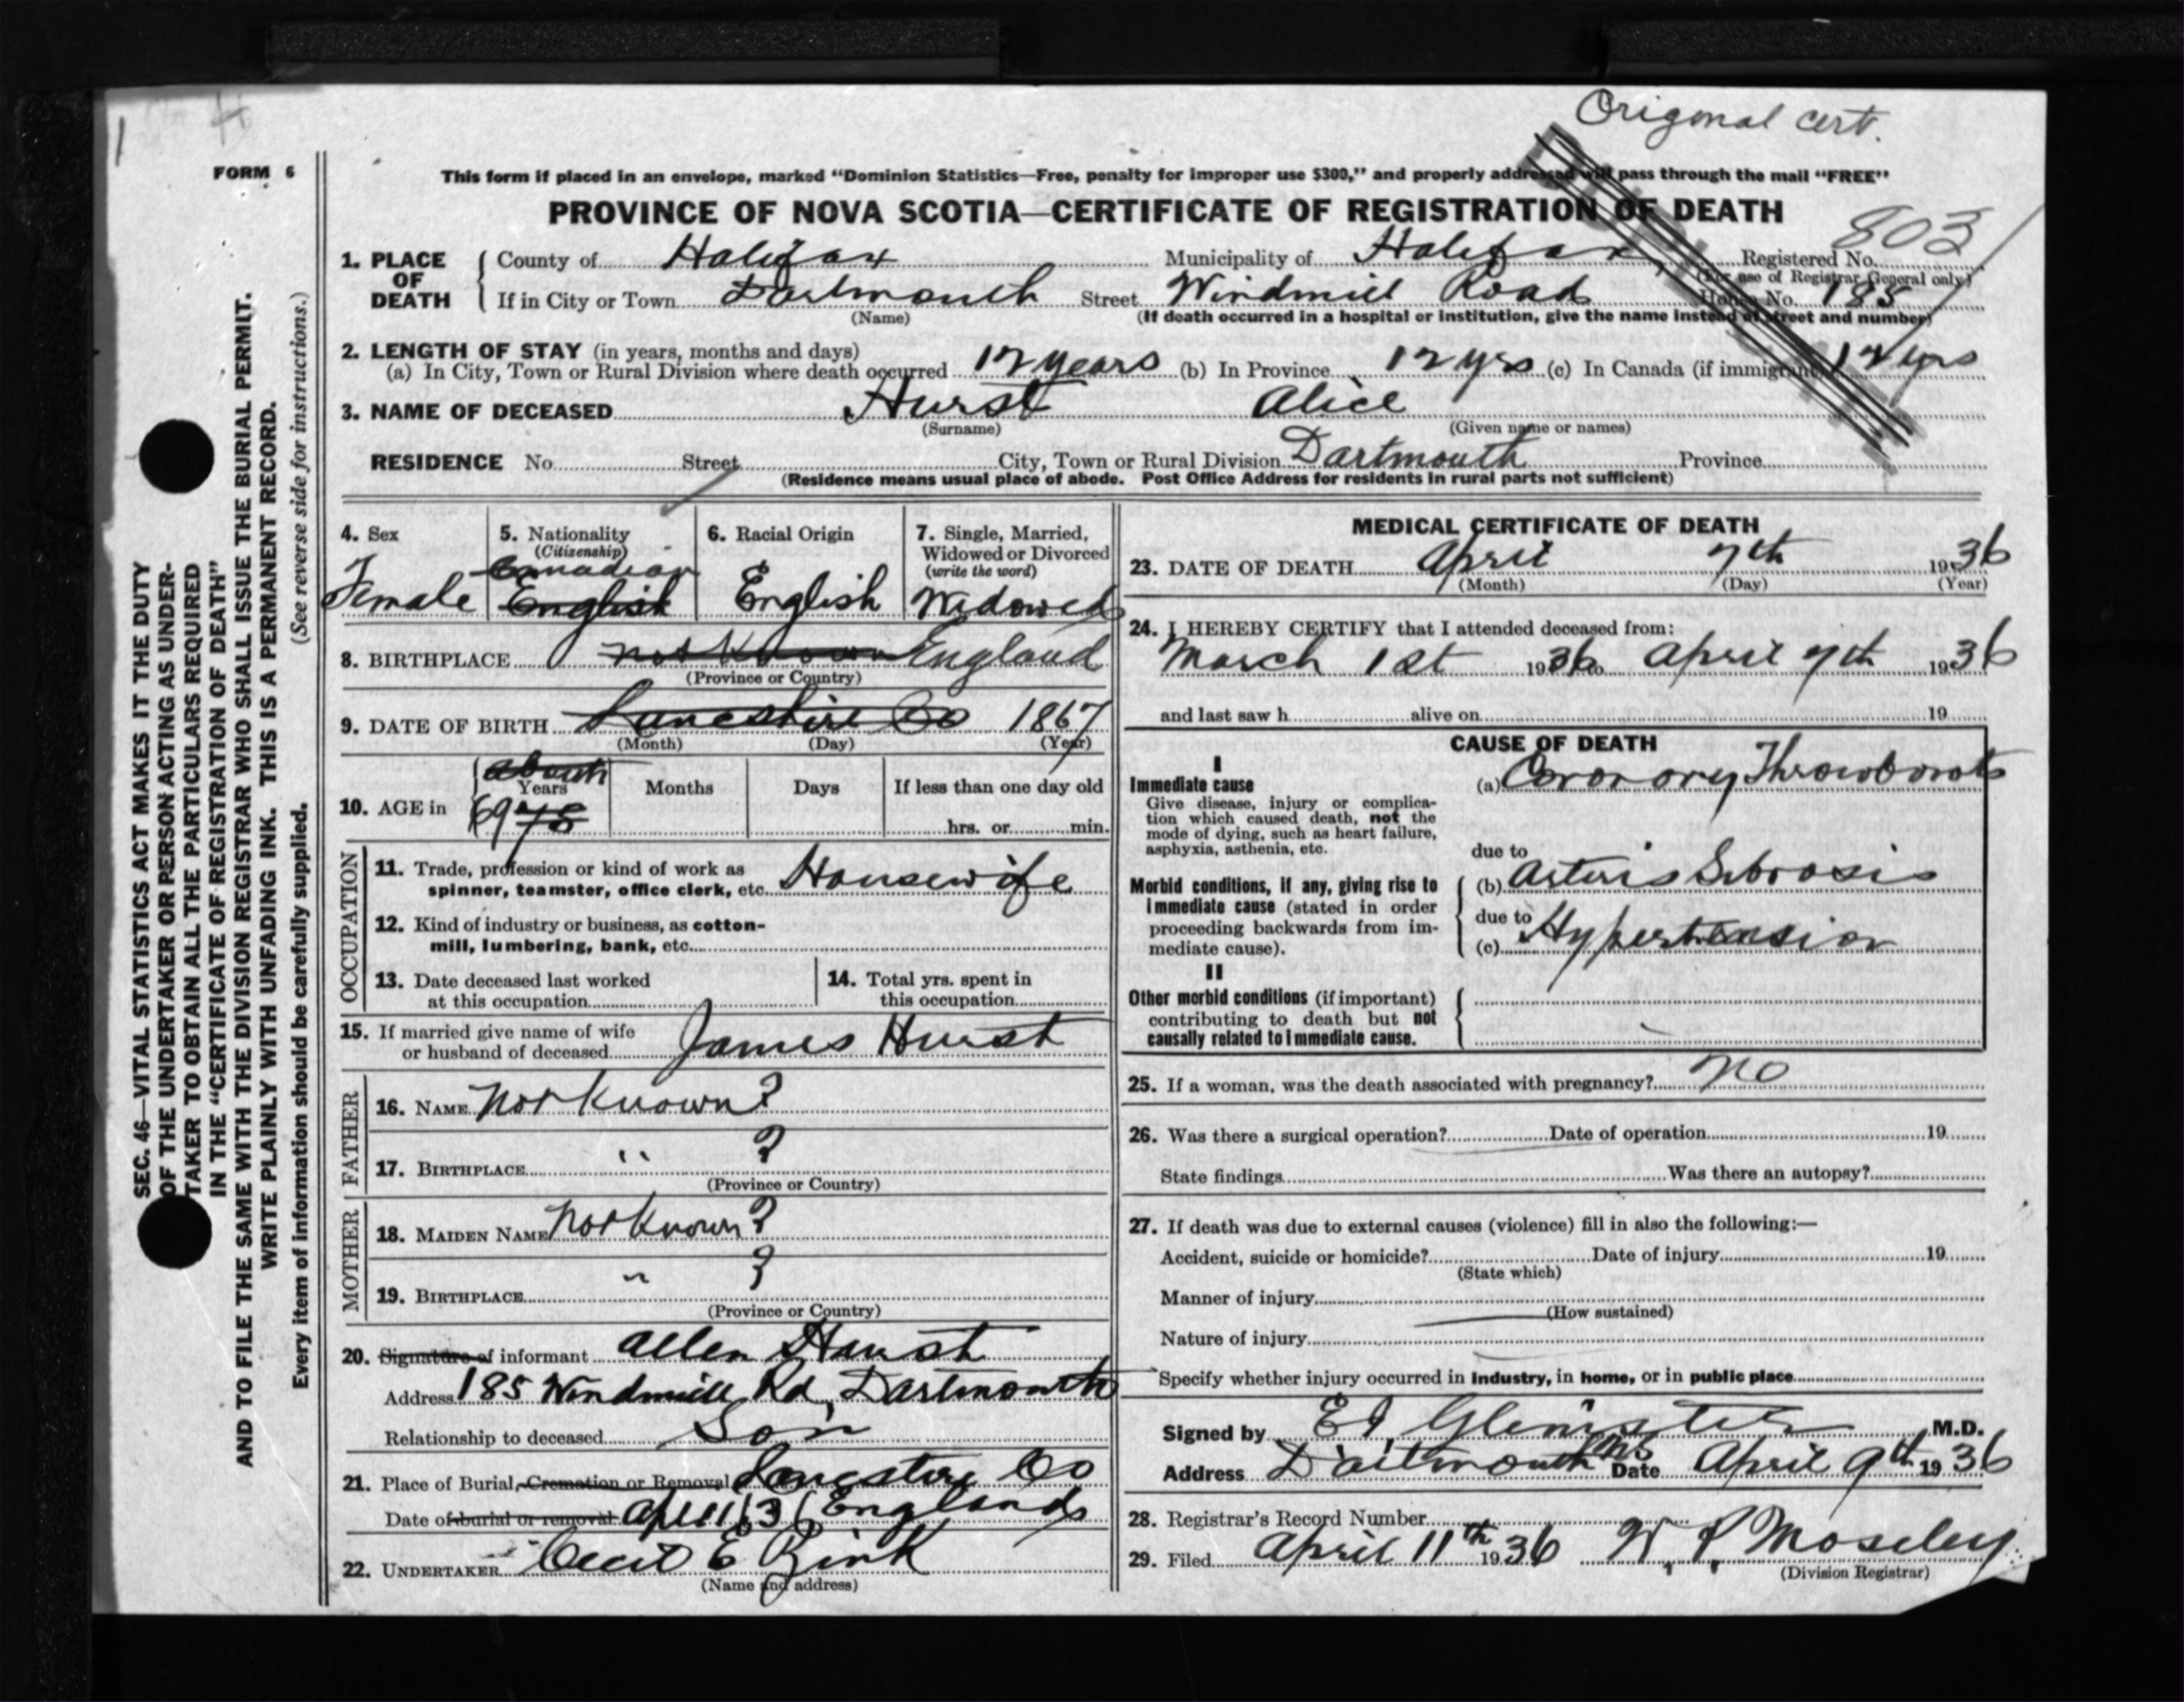 Original cert.
FORM 6
This form if placed in an envelope, marked "Dominion Statistics—Free, penalty for improper use $300," and properly addressed will pass through the mail "FREE"
PROVINCE OF NOVA SCOTIA—CERTIFICATE OF REGISTRATION OF DEATH
803
1. PLACE OF DEATH County of Halifax Municipality of Halifax Registered No.
(For use of Registrar General only)
If in City or Town Dartmouth Street Windmill Road House No. 185
(Name) (If death occurred in a hospital or institution, give the name instead of street and number)
2. LENGTH OF STAY (in years, months and days)
(a) In City, Town or Rural Division where death occurred 12 years (b) In Province 12 yrs (c) In Canada (if immigrant) 12 yrs
3. NAME OF DECEASED Hurst Alice
(Surname) (Given name or names)
RESIDENCE No. Street City, Town or Rural Division Dartmouth Province
(Residence means usual place of abode. Post Office Address for residents in rural parts not sufficient)
4. Sex
Female
5. Nationality
(Citizenship)
Canadian
English
6. Racial Origin
English
7. Single, Married,
Widowed or Divorced
(write the word)
Widowed
8. BIRTHPLACE not Known England
(Province or Country)
9. DATE OF BIRTH Lancashire Co 1867
(Month) (Day) (Year)
10. AGE in
about
Years Months Days If less than one day old
69 78 hrs. or min.
OCCUPATION
11. Trade, profession or kind of work as
spinner, teamster, office clerk, etc. Housewife
12. Kind of industry or business, as cotton-
mill, lumbering, bank, etc.
13. Date deceased last worked
at this occupation
14. Total yrs. spent in
this occupation
15. If married give name of wife
or husband of deceased James Hurst
FATHER
16. NAME Not Known ?
17. BIRTHPLACE " ?
(Province or Country)
MOTHER
18. MAIDEN NAME Not Known ?
19. BIRTHPLACE " ?
(Province or Country)
20. Signature of informant Allen Hurst
Address 185 Windmill Rd, Dartmouth
Relationship to deceased Son
21. Place of Burial, Cremation or Removal Lancashire Co
Date of burial or removal Apl 11/36 England
22. UNDERTAKER Cecil E Zink
(Name and address)
MEDICAL CERTIFICATE OF DEATH
23. DATE OF DEATH April 7th 1936
(Month) (Day) (Year)
24. I HEREBY CERTIFY that I attended deceased from:
March 1st 1936 to April 7th 1936
and last saw h alive on 19
CAUSE OF DEATH
I
Immediate cause (a) Coronary Thrombosis
Give disease, injury or complica-
tion which caused death, not the
mode of dying, such as heart failure,
asphyxia, asthenia, etc.
due to
Morbid conditions, if any, giving rise to
immediate cause (stated in order
proceeding backwards from im-
mediate cause).
(b)
due to
(c) Hypertension
II
Other morbid conditions (if important)
contributing to death but not
causally related to immediate cause.
25. If a woman, was the death associated with pregnancy? no
26. Was there a surgical operation? Date of operation 19
State findings Was there an autopsy?
27. If death was due to external causes (violence) fill in also the following:—
Accident, suicide or homicide? Date of injury 19
(State which)
Manner of injury
(How sustained)
Nature of injury
Specify whether injury occurred in industry, in home, or in public place
Signed by Glenister M.D.
Address Dartmouth NS Date April 9th 1936
28. Registrar's Record Number
29. Filed April 11th 1936 W. P. Moseley
(Division Registrar)
SEC. 46—VITAL STATISTICS ACT MAKES IT THE DUTY
OF THE UNDERTAKER OR PERSON ACTING AS UNDER-
TAKER TO OBTAIN ALL THE PARTICULARS REQUIRED
IN THE "CERTIFICATE OF REGISTRATION OF DEATH"
AND TO FILE THE SAME WITH THE DIVISION REGISTRAR WHO SHALL ISSUE THE BURIAL PERMIT.
WRITE PLAINLY WITH UNFADING INK. THIS IS A PERMANENT RECORD.
Every item of information should be carefully supplied. (See reverse side for instructions.)